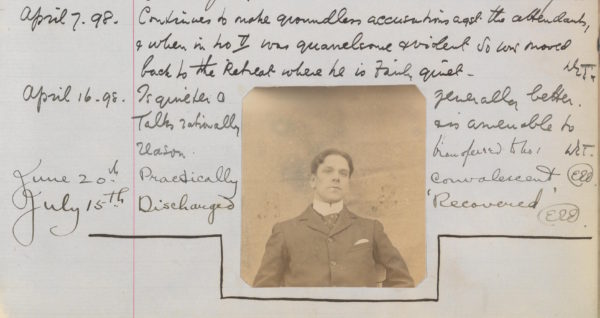 April 7. 98. Continues to make groundless accusations agst the attendants,
& when in No II was quarrelsome & violent so was moved
back to the Retreat where he is fairly quiet. W.T.
April 16. 98. Is quieter & generally better.
Talks rationally & is amenable to
reason. transferred to No 1 W.T.
June 20th Practically convalescent
July 15th Discharged 'Recovered'